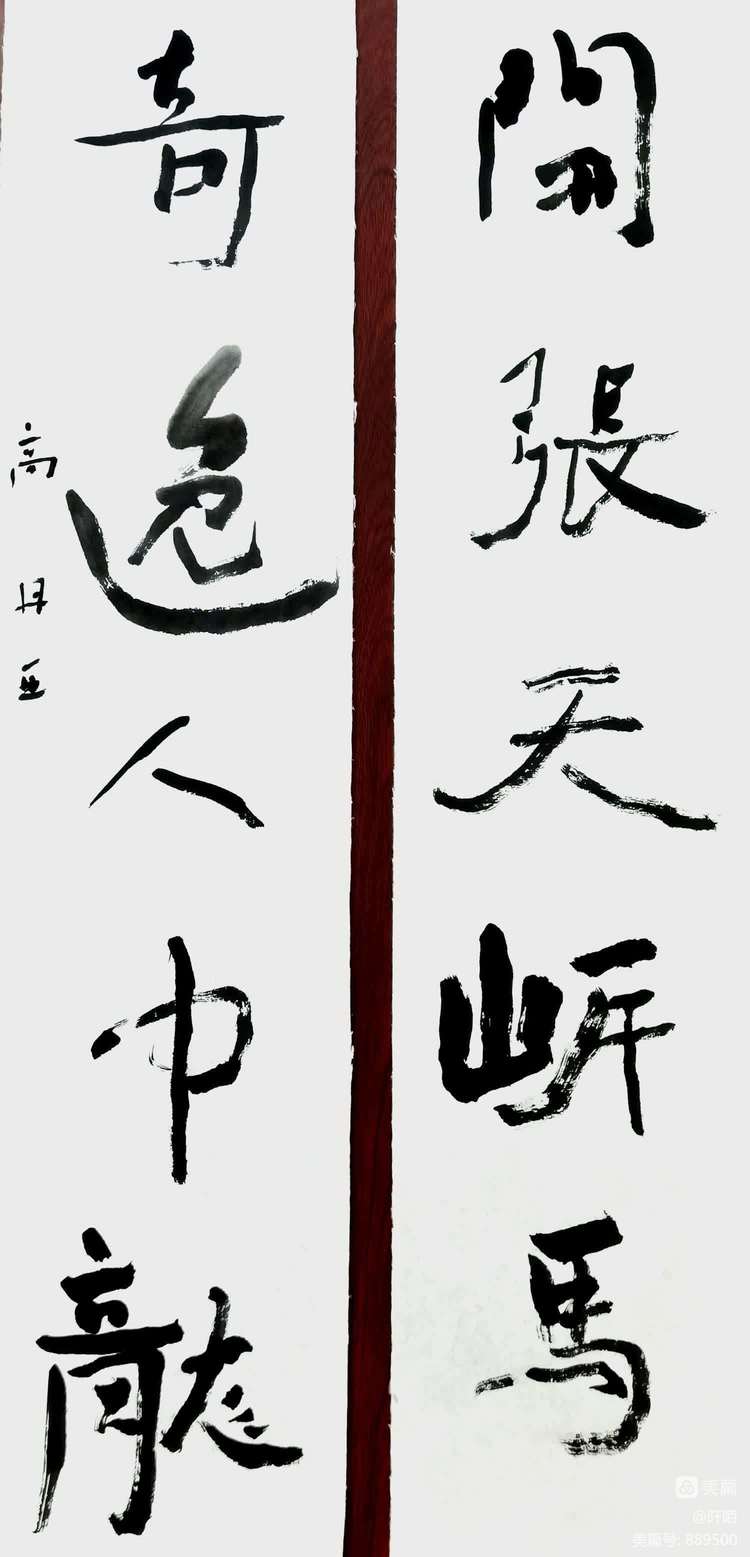 開張天岸馬
奇逸人中龍
高
美篇
@阡陌
美篇号: 889500